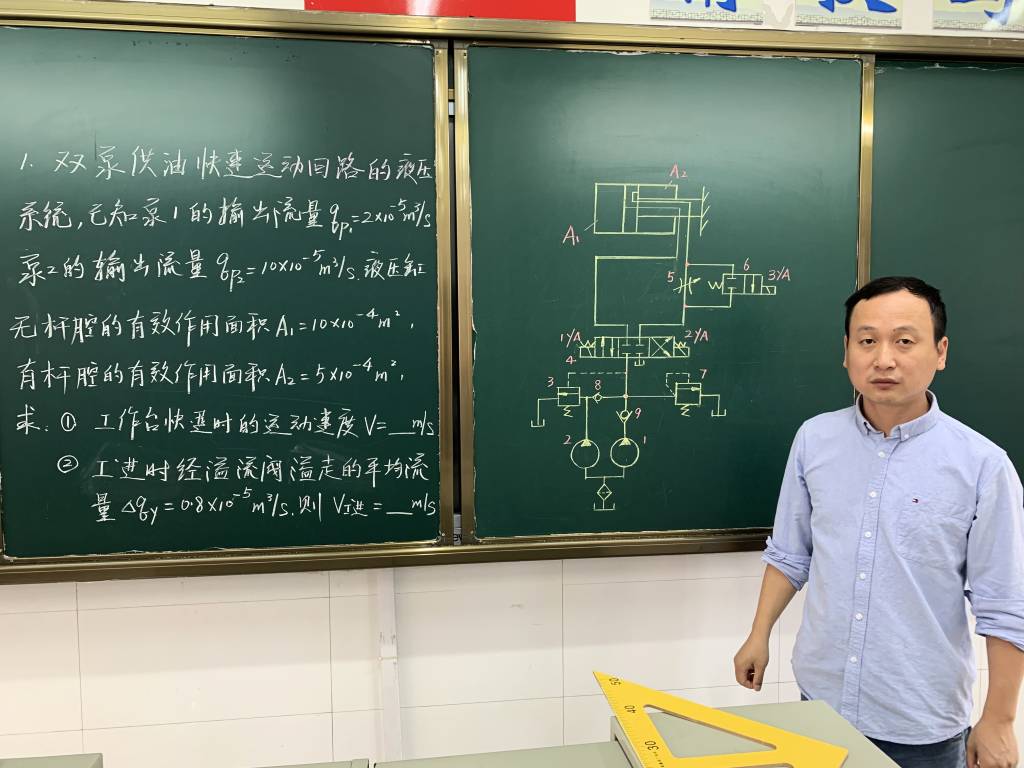 1. 双泵供油快速运动回路的液压
系统，已知泵1的输出流量 qp₁=2×10⁻⁵m³/s
泵2的输出流量 qp₂=10×10⁻⁵m³/s. 液压缸
无杆腔的有效作用面积 A₁=10×10⁻⁴m²,
有杆腔的有效作用面积 A₂=5×10⁻⁴m²,
求. ① 工作台快进时的运动速度 V=__m/s
② 工进时经溢流阀溢走的平均流
量 Δqy=0.8×10⁻⁵m³/s. 则 V工进=__m/s
A₂
A₁
5
6
3YA
1YA
2YA
4
3
8
7
9
2
1
50
40
30